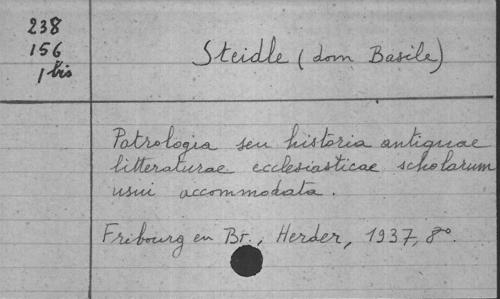 238
156
1 bis
Steidle (dom Basile)
Patrologia seu historia antiquae
litteraturae ecclesiasticae scholarum
usui accommodata.
Fribourg en Br., Herder, 1937, 8°.